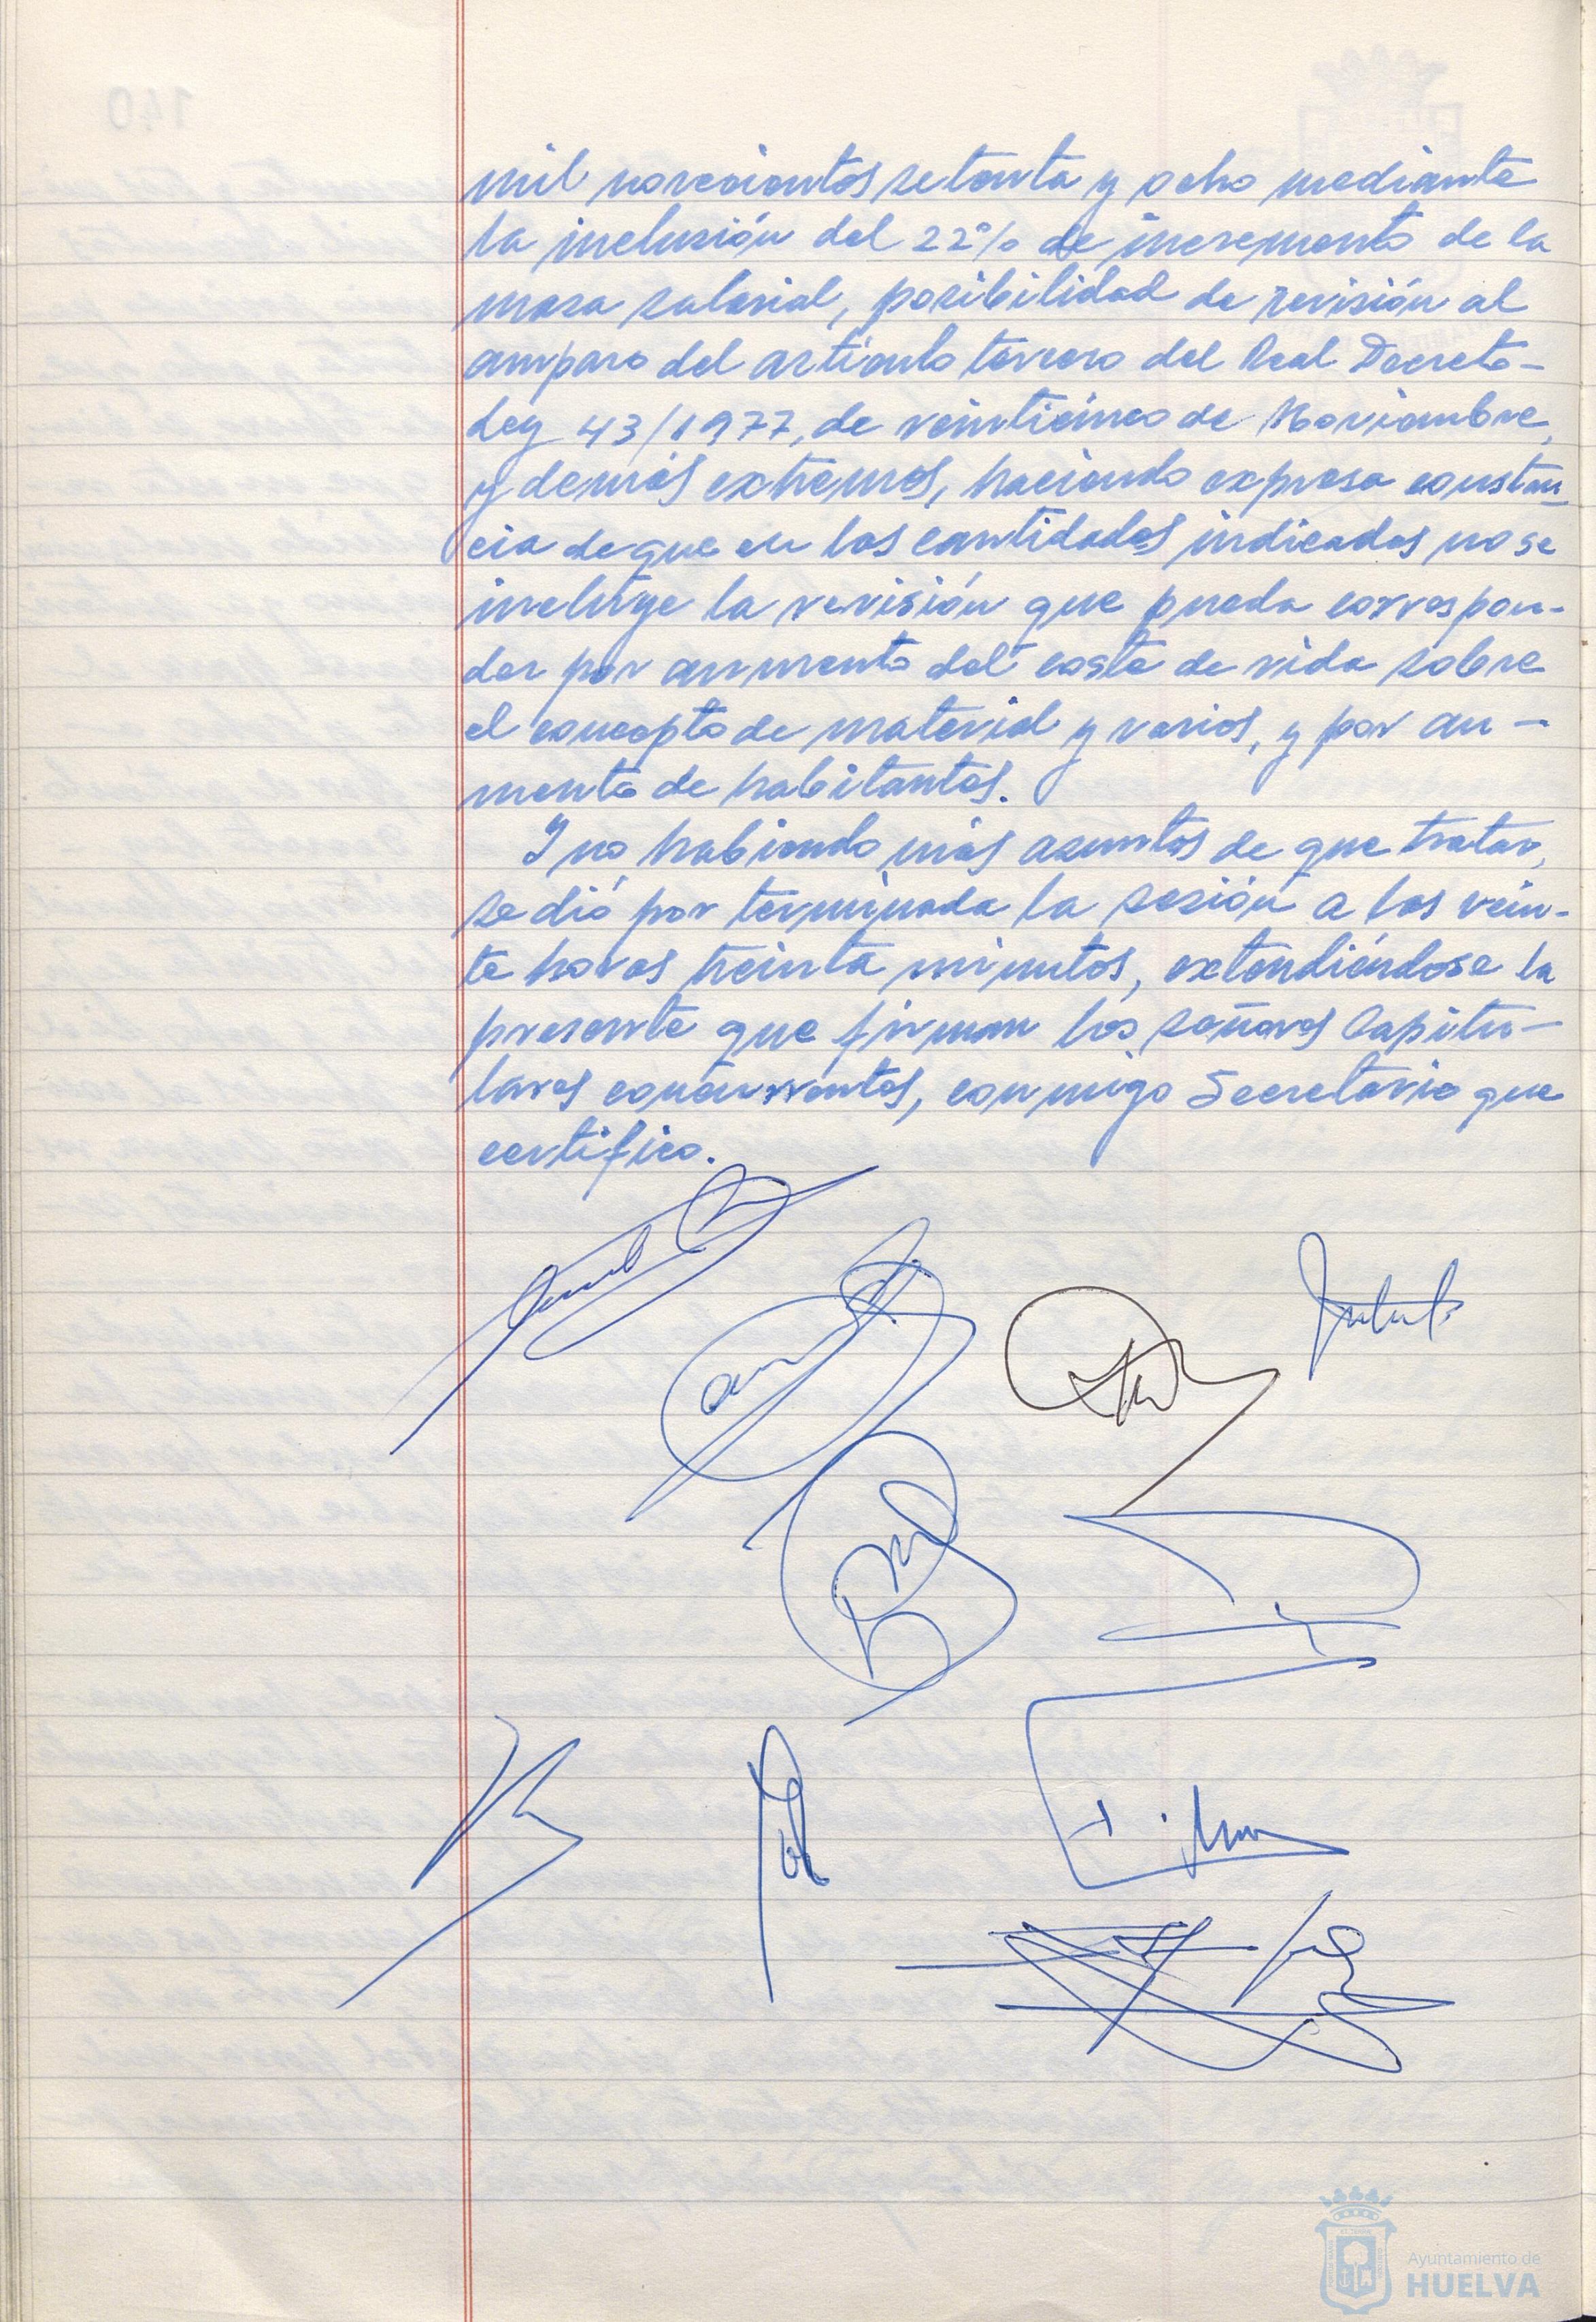 mil novecientos setenta y ocho mediante
la inclusión del 22% de incremento de la
masa salarial, posibilidad de revisión al
amparo del artículo tercero del Real Decreto-
Ley 43/1977, de veinticinco de Noviembre,
y demás extremos, haciendo expresa constan-
cia de que en las cantidades indicadas no se
incluye la revisión que pueda correspon-
der por aumento del coste de vida sobre
el concepto de material y varios, y por au-
mento de habitantes.
Y no habiendo más asuntos de que tratar,
se dió por terminada la sesión a las vein-
te horas treinta minutos, extendiéndose la
presente que firman los señores Capitu-
lares concurrentes, conmigo Secretario que
certifico.
Ayuntamiento de
HUELVA